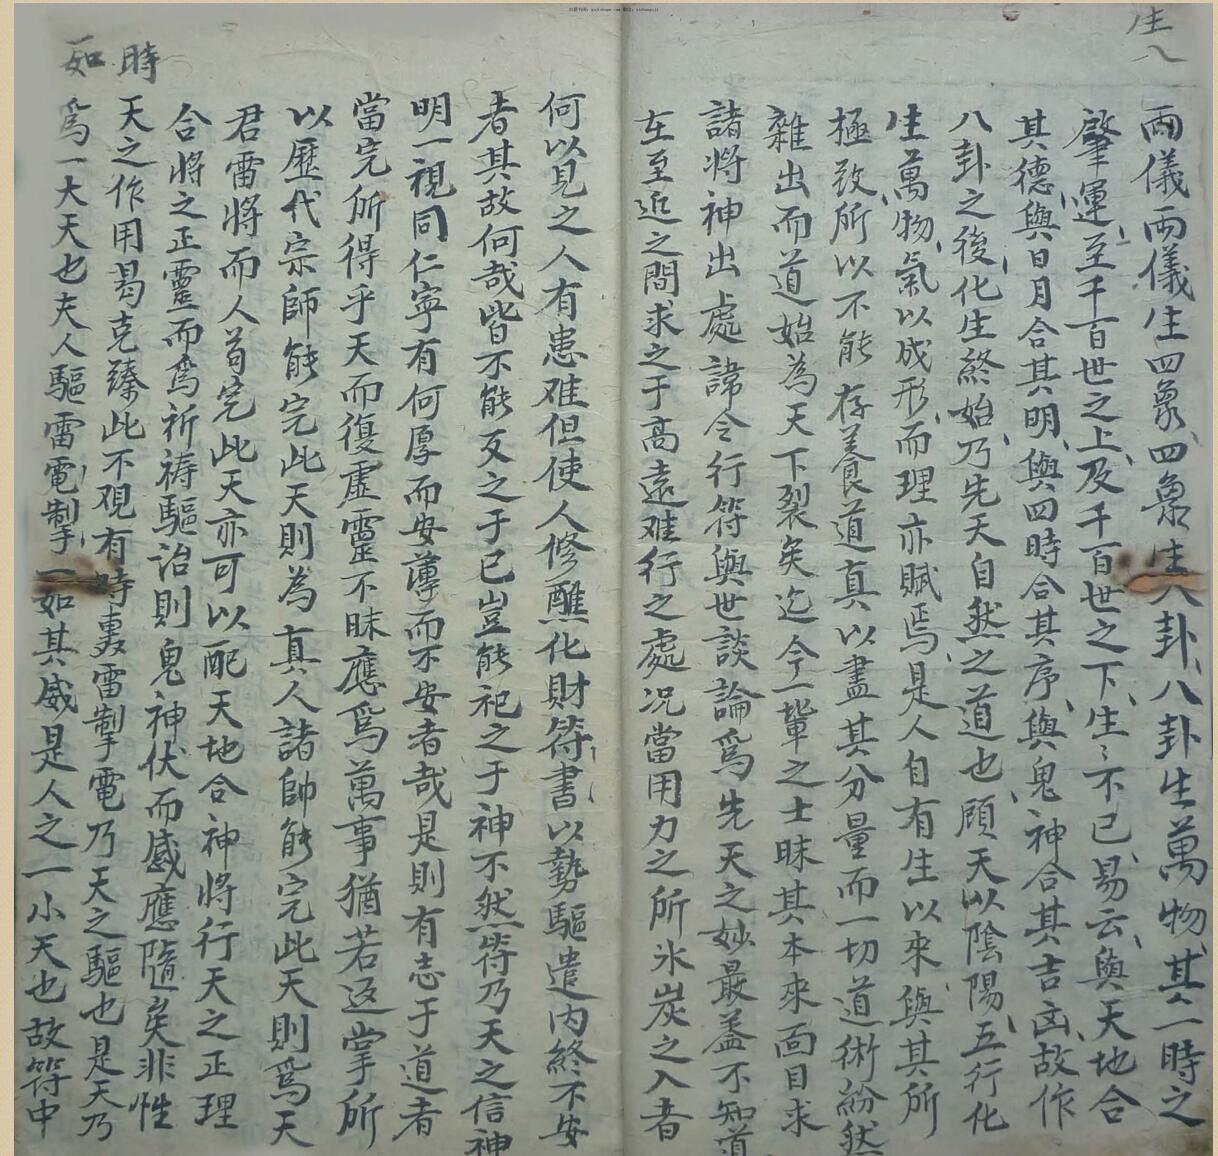 生八
兩儀兩儀生四象四象生八卦八卦生萬物其一時之
肇運至千百世之上及千百世之下生〻不已易云與天地合
其德與日月合其明與四時合其序與鬼神合其吉凶故作
八卦之後化生終始乃先天自然之道也顧天以陰陽五行化
生萬物氣以成形而理亦賦焉是人自有生以來與其所
極致所以不能存養道真以盡其分量而一切道術紛然
雜出而道始為天下裂矣迄今一輩之士昧其本來面目求
諸將神出處諱令行符與世談論爲先天之妙最盖不知道
在至近之間求之于高遠难行之處况當用力之所氷炭之入者
何以見之人有患难但使人修醮化財符書以勢驅遣内終不安
者其故何哉皆不能反之于己豈能祀之于神不然符乃天之信神
明一視同仁寧有何厚而安薄而不安者哉是則有志于道者
當完所得乎天而復虛靈不昧應爲萬事猶若返掌所
以歷代宗師能完此天則為真人諸帥能完此天則爲天
君雷將而人苟完此天亦可以配天地合神將行天之正理
合將之正靈而爲祈祷驅治則鬼神伏而感應隨矣非性
時
天之作用曷克臻此不覌有時轟雷掣電乃天之驅也是天乃
如
爲一大天也夫人驅雷電掣一如其威是人之一小天也故符中